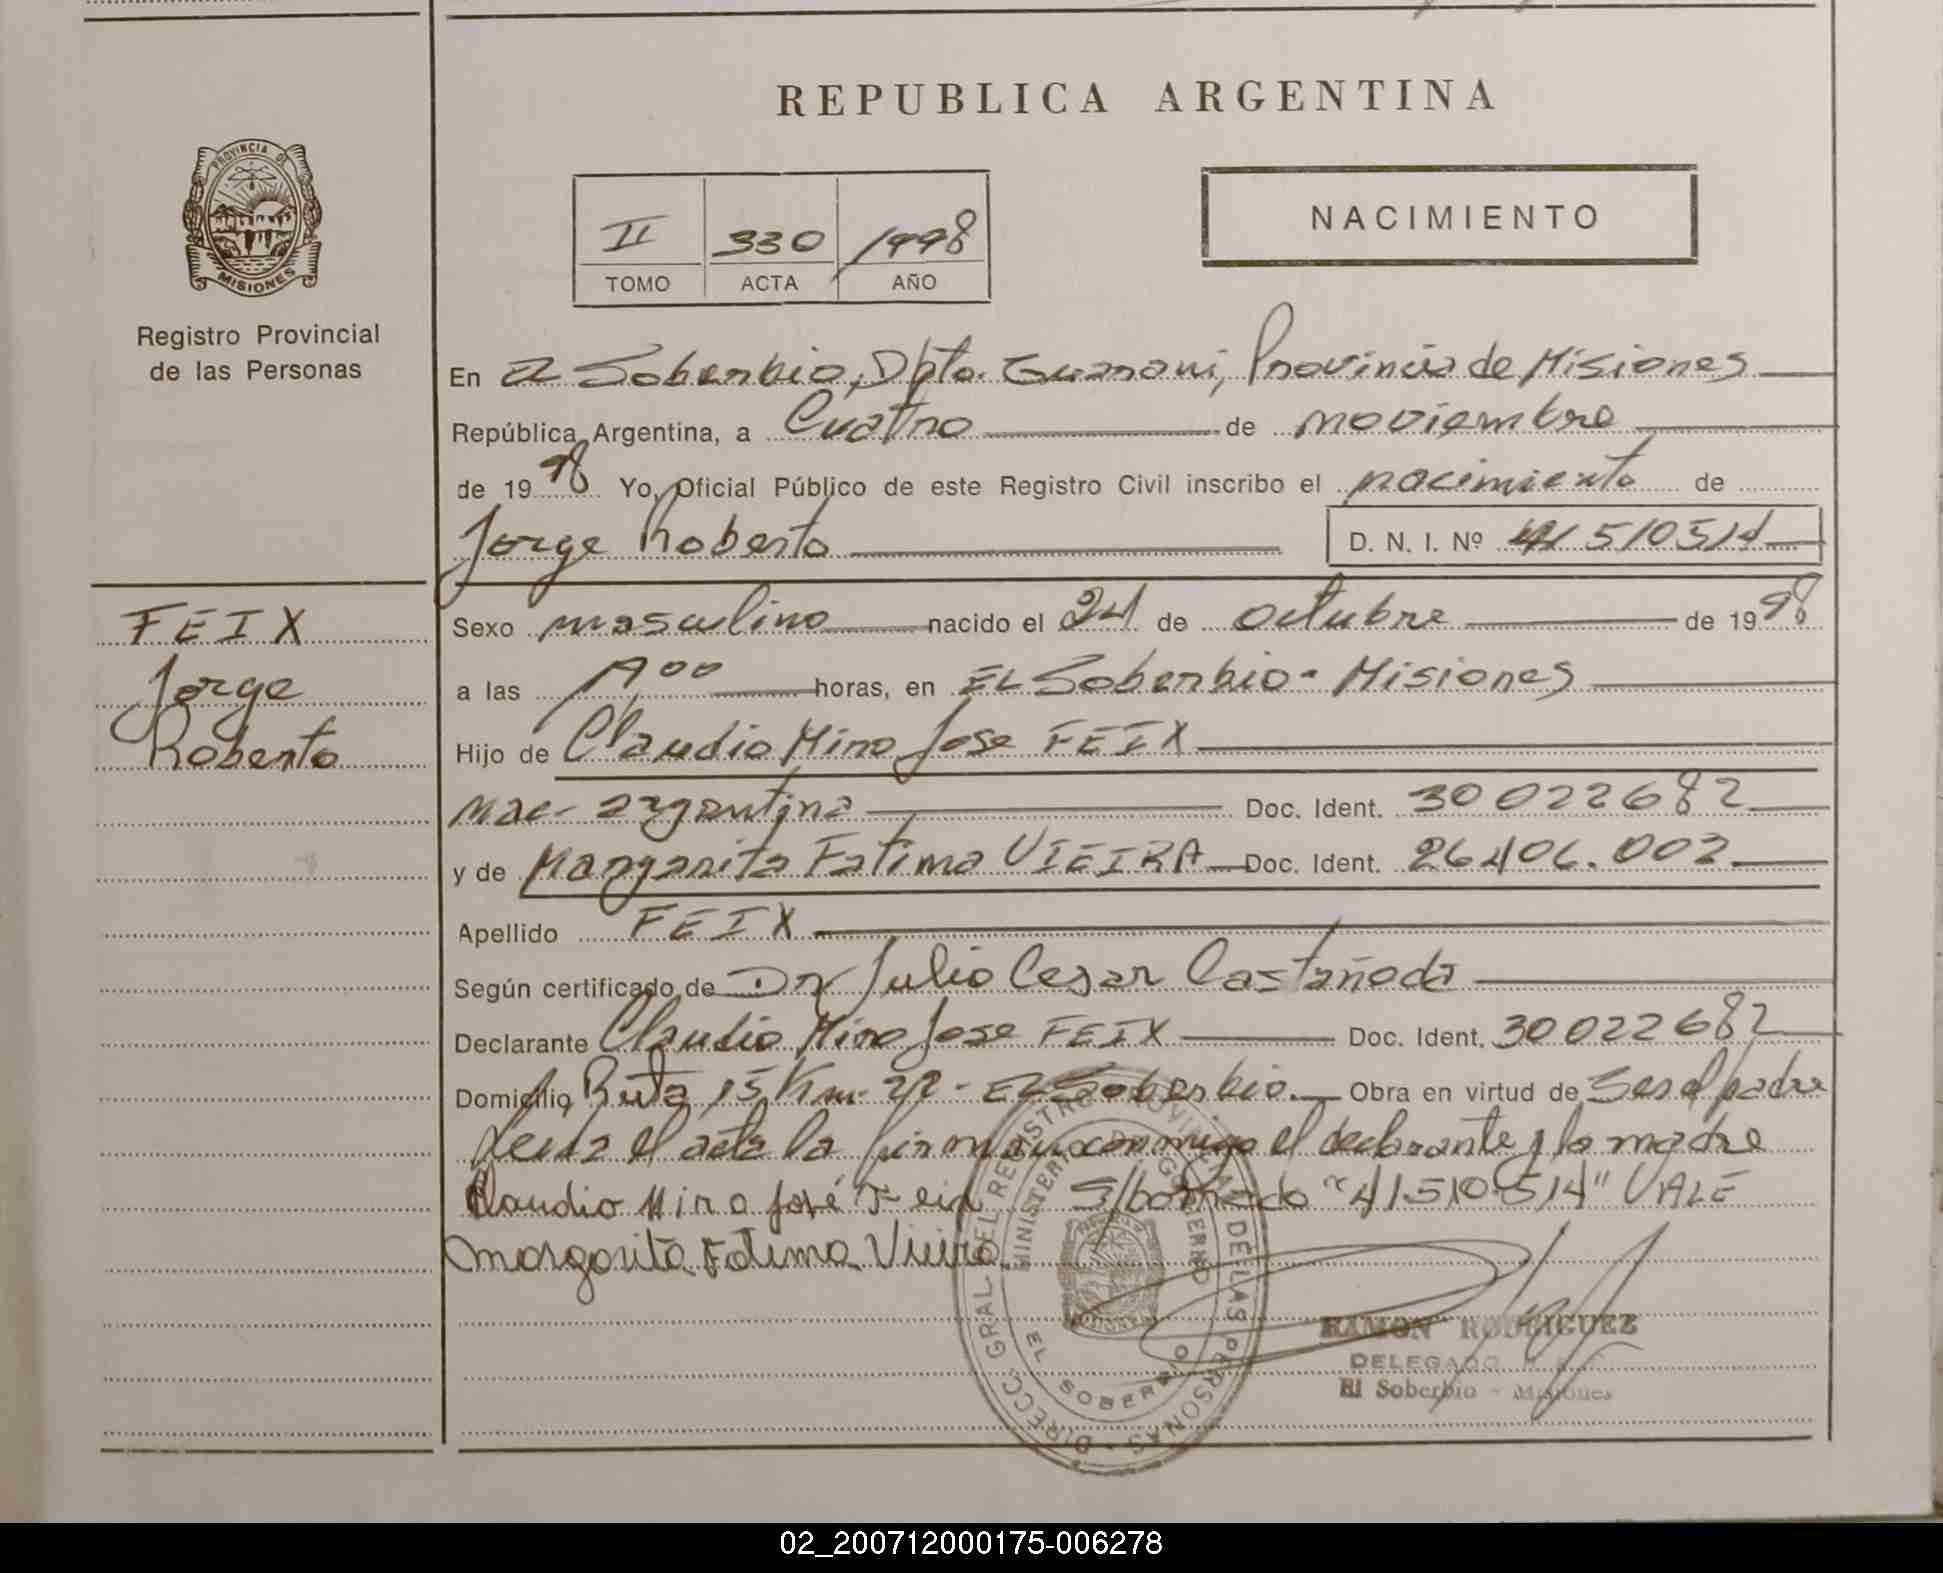 REPUBLICA ARGENTINA
PROVINCIA DE
MISIONES
Registro Provincial
de las Personas
II 330 1998
TOMO ACTA AÑO
NACIMIENTO
En El Soberbio, Dpto. Guarani, Provincia de Misiones
República Argentina, a Cuatro de noviembre
de 1998 Yo, Oficial Público de este Registro Civil inscribo el nacimiento de
Jorge Roberto D. N. I. Nº 41510514
FEIX
Jorge
Roberto
Sexo masculino nacido el 24 de octubre de 1998
a las horas, en EL Soberbio - Misiones
Hijo de Claudio Miro Jose FEIX
nac- argentina Doc. Ident. 30022682
y de Margarita Fatima VIEIRA Doc. Ident. 26406.002
Apellido FEIX
Según certificado de Dr Julio Cesar Castañeda
Declarante Claudio Miro Jose FEIX Doc. Ident. 30022682
Domicilio Ruta 15 Km- 22 - EL Soberbio. Obra en virtud de Ser el padre
Leida el acta la firman conmigo el declarante y la madre
Claudio Miro José Feix S/borrado "41510514" VALE
Margarita Fatima Vieira
DIRECC. GRAL. DEL REGISTRO PROVINCIAL DE LAS PERSONAS
MINISTERIO DE GOBIERNO
EL SOBERBIO
RAMON RODRIGUEZ
DELEGADO
El Soberbio - Misiones
02_200712000175-006278